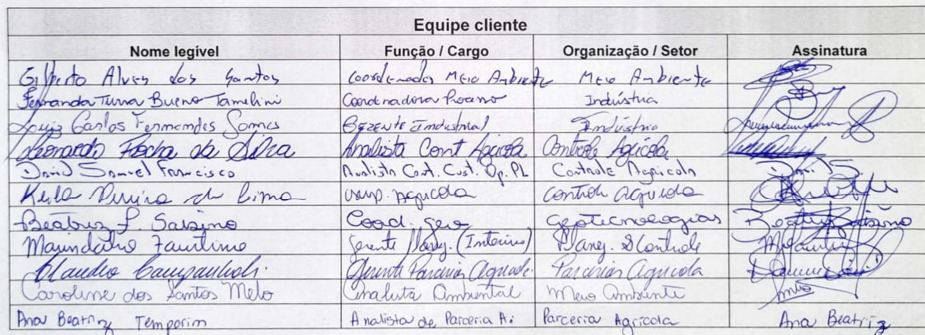 Equipe cliente
Nome legível Função / Cargo Organização / Setor Assinatura
Gilberto Alves dos Santos Coordenador Meio Ambiente Meio Ambiente
Fernanda Turra Bueno Tamelini Coordenadora Indústria
Luiz Carlos Fernandes Gomes Gerente Industrial Indústria
Leonardo Rocha da Silva Analista Cont Agrícola Controle Agrícola
David Samuel Francisco Analista Cont. Cust. Op. PL Controle Agrícola
Keila de Lima agrícola controle agrícola
Beatriz F. Sabino Coord. Geo Geotecnologias Beatriz Sabino
Faustino Gerente Planej. (Interino) Planej. & Controle
Claudio Campanholi Gerente Parceria Agrícola Parcerias Agrícola
Caroline dos Santos Melo Analista Ambiental Meio Ambiente
Ana Beatriz Temporim Analista de Parceria A. Parceria Agrícola Ana Beatriz